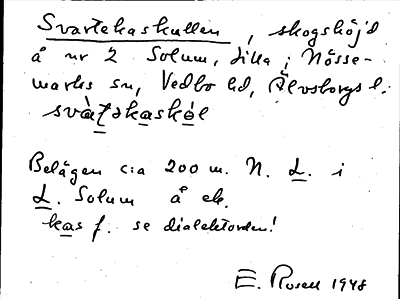 Svartekaskullen, skogshöjd
å nr 2 Solum, Lilla, Nösse-
marks sn, Vedbo hd, Älvsborgs l.
svàʈəkaskəl
Belägen c:a 200 m. N. L. i
L. Solum å ek.
kas f. se dialektorden!
E. Rosell 1948